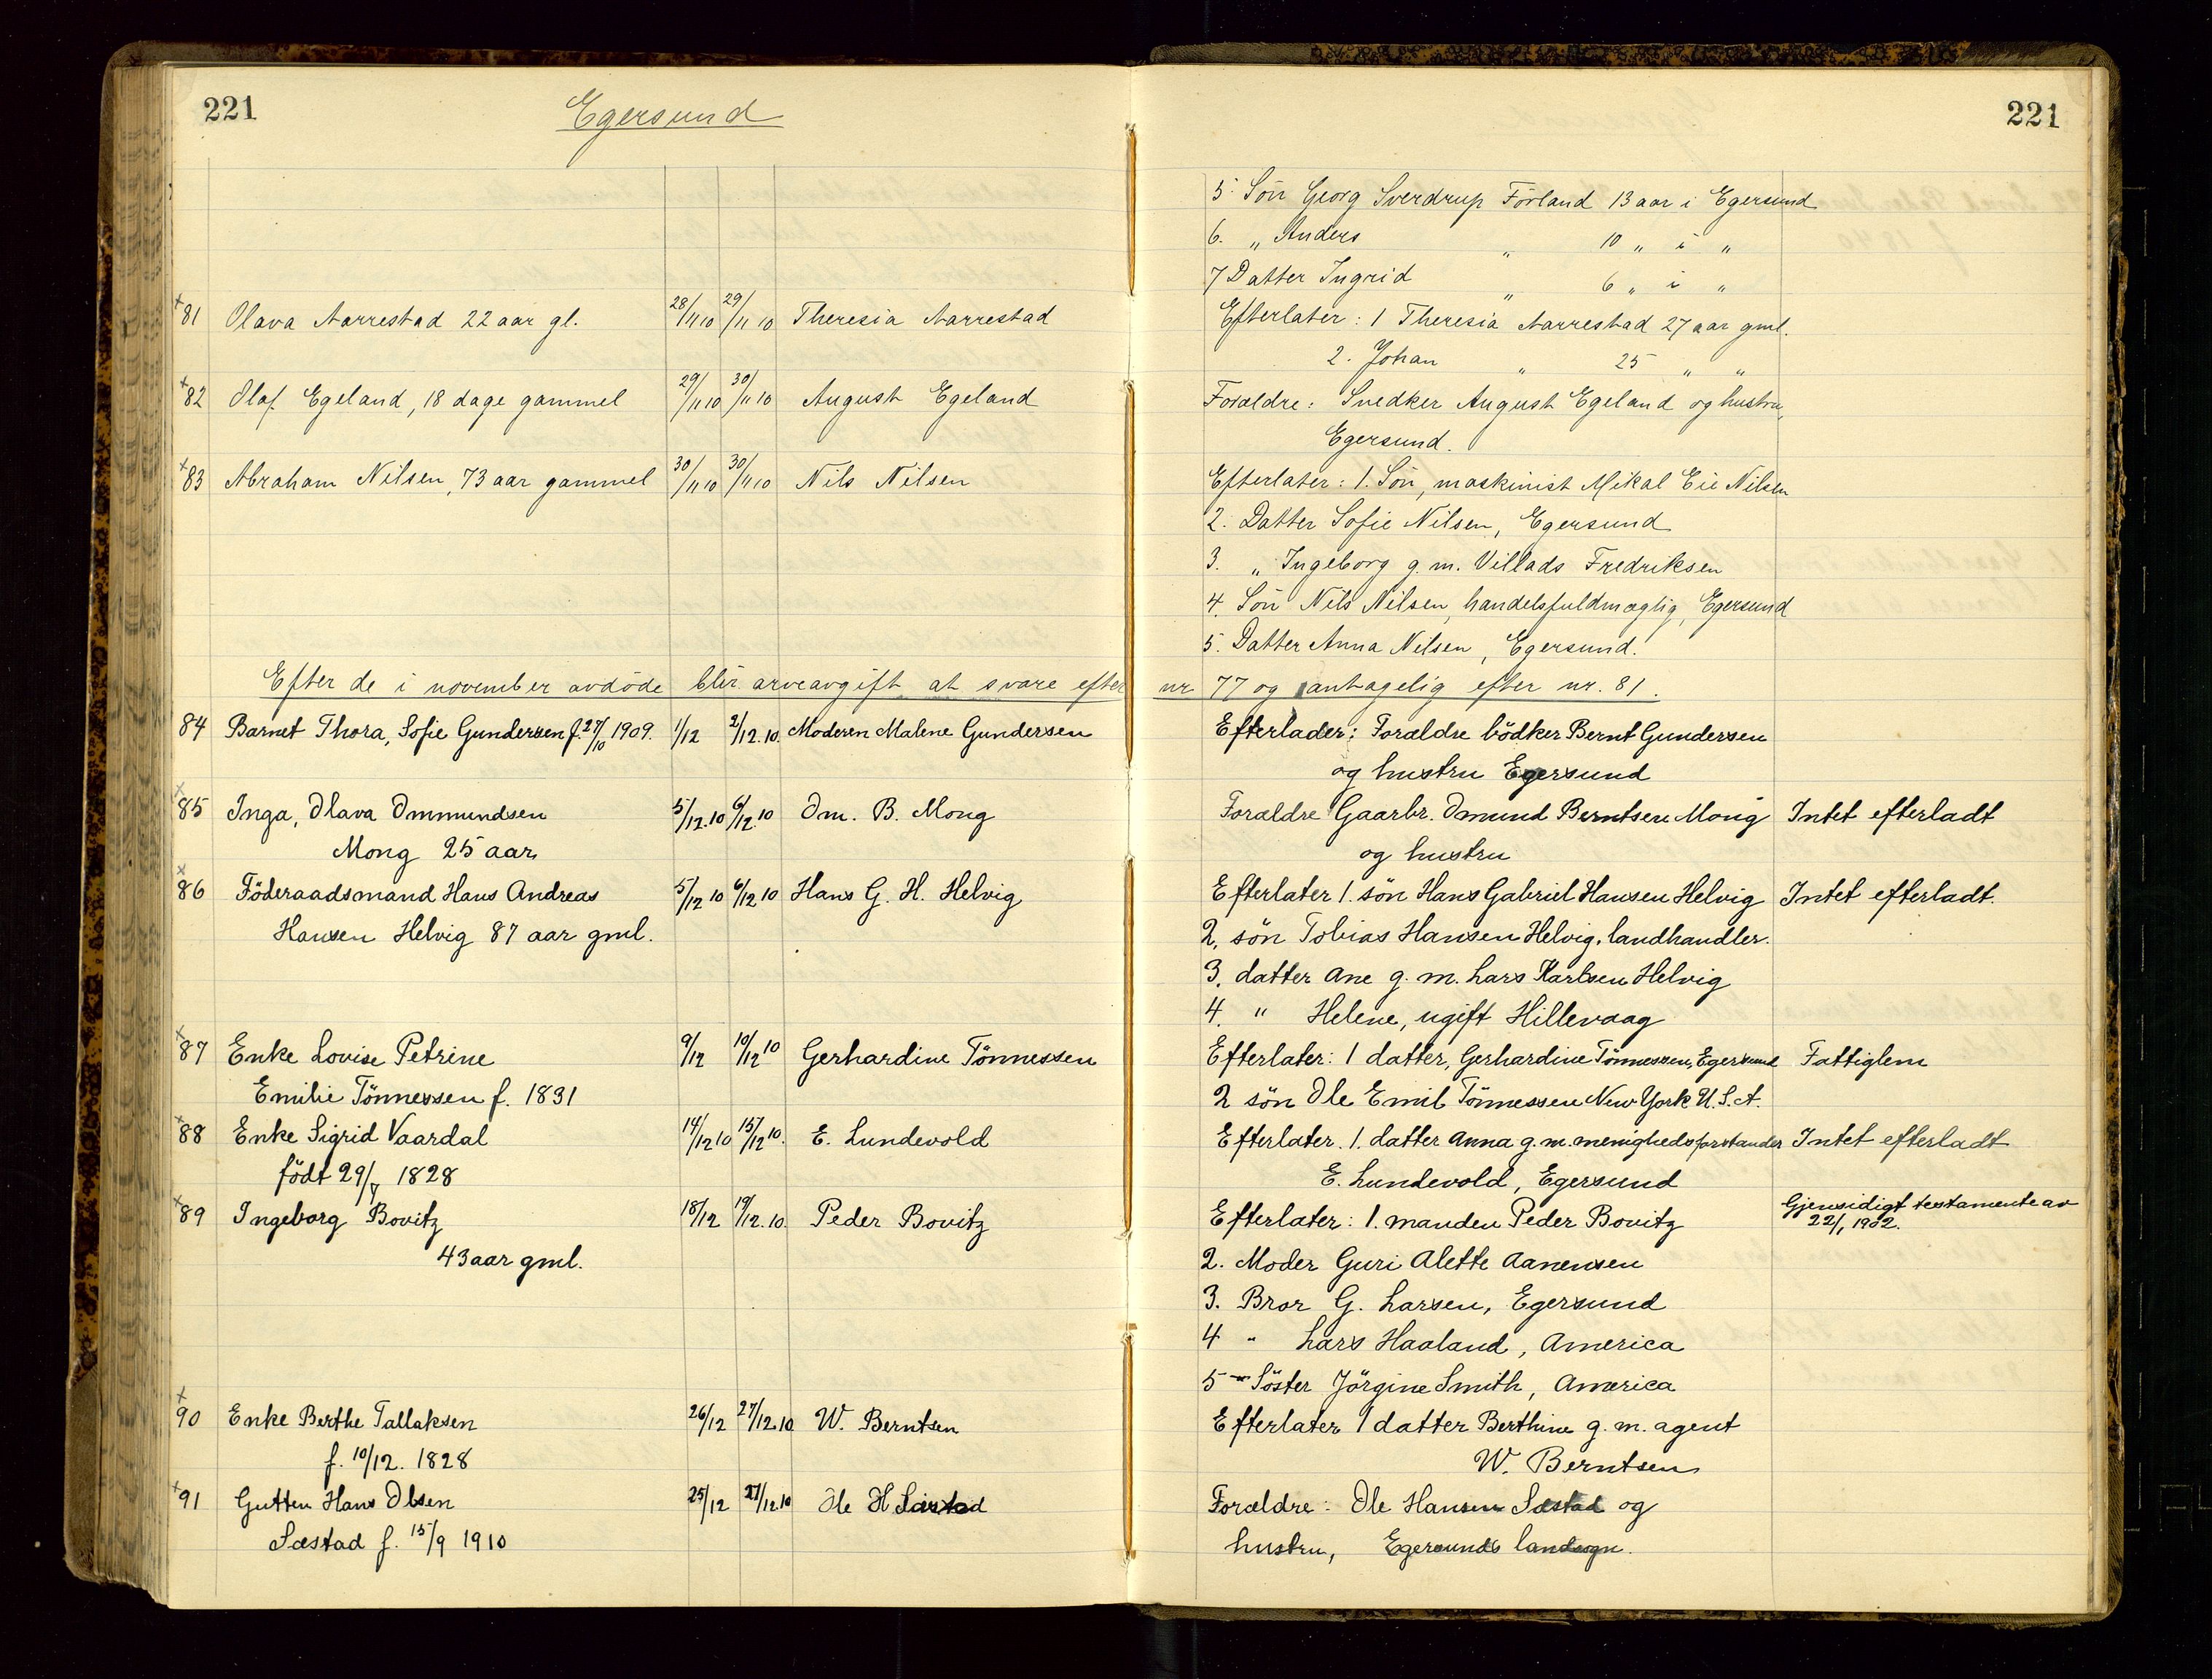 221
Egersund
81 Olava Aarrestad 22 aar gl. 28/11 10 29/11 10 Theresia Aarrestad
82 Olaf Egeland, 18 dage gammel 29/11 10 30/11 10 August Egeland
83 Abraham Nilsen, 73 aar gammel 30/11 10 30/11 10 Nils Nilsen
Efter de i november avdöde blir arveavgift at svare efter
84 Barnet Thora, Sofie Gundersen f. 27/10 1909. 1/12 2/12.10. Moderen Malene Gundersen
85 Inga, Olava Ommundsen 5/12.10 6/12.10 Om. B. Mong
Mong 25 aar
86 Föderaadsmand Hans Andreas 5/12 10 6/12 10 Hans G. H. Helvig
Hansen Helvig 87 aar gml.
87 Enke Lovise Petrine 9/12 10/12 10 Gerhardine Tönnessen
Emilie Tönnessen f. 1831
88 Enke Sigrid Vaardal 14/12 10 15/12 10. E. Lundevold
født 29/7 1828
89 Ingeborg Bovitz 18/12 19/12.10. Peder Bovitz
43 aar gml.
90 Enke Berthe Tallaksen 26/12 27/12.10 W. Berntsen
f. 10/12. 1828
91 Gutten Hans Olsen 25/12 27/12.10 Ole H Sæstad
Sæstad f. 15/9 1910
221
5. Sön Georg Sverdrup Förland 13 aar i Egersund
6. „ Anders „ 10 „ i „
7 Datter Ingrid „ 6 „ i „
Efterlater: 1 Theresia Aarrestad 27 aar gml.
2. Johan „ 25 „ „
Forældre: Snedker August Egeland og hustru,
Egersund.
Efterlater: 1. Sön, maskinist Mikal Eie Nilsen
2. Datter Sofie Nilsen, Egersund
3. „ Ingeborg g. m. Villads Fredriksen
4. Sön Nils Nilsen, handelsfuldmægtig, Egersund
5. Datter Anna Nilsen, Egersund.
nr 77 og antagelig efter nr. 81.
Efterlader: Forældre bödker Bernt Gundersen
og hustru Egersund
Forældre Gaarbr. Omund Berntsen Mong Intet efterladt
og hustru
Efterlater 1. sön Hans Gabriel Hansen Helvig Intet efterladt.
2. sön Tobias Hansen Helvig, landhandler.
3. datter Ane g. m. Lars Karlsen Helvig
4. " Helene, ugift Hillevaag
Efterlater: 1 datter, Gerhardine Tönnessen, Egersund Fattiglem
2 sön Ole Emil Tönnessen New York U.S.A.
Efterlater. 1. datter Anna g. m. menighedsforstander Intet efterladt
E. Lundevold, Egersund
Efterlater: 1. manden Peder Bovitz Gjensidigt testamente av
22/1 1902.
2. Moder Guri Alette Aanensen
3. Bror G. Larsen, Egersund
4 " Lars Haaland, America
5 Söster Jörgine Smith, America
Efterlater 1 datter Berthine g. m. agent
W. Berntsen
Forældre: Ole Hansen Sæstad og
hustru, Egersunds landsogn.